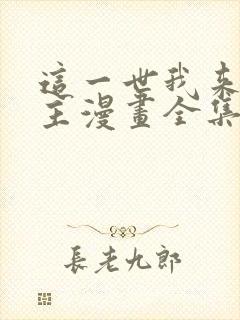 這一世我来
主漫畫全集
長老九郎